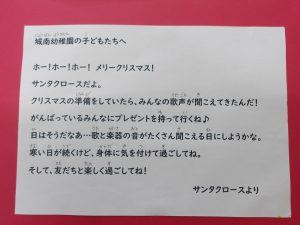 城南幼稚園の子どもたちへ
ホー！ホー！ホー！ メリークリスマス！
サンタクロースだよ。
クリスマスの準備をしていたら、みんなの歌声が聞こえてきたんだ！
がんばっているみんなにプレゼントを持って行くね♪
日はそうだなあ…歌と楽器の音がたくさん聞こえる日にしようかな。
寒い日が続くけど、身体に気を付けて過ごしてね。
そして、友だちと楽しく過ごしてね！
サンタクロースより